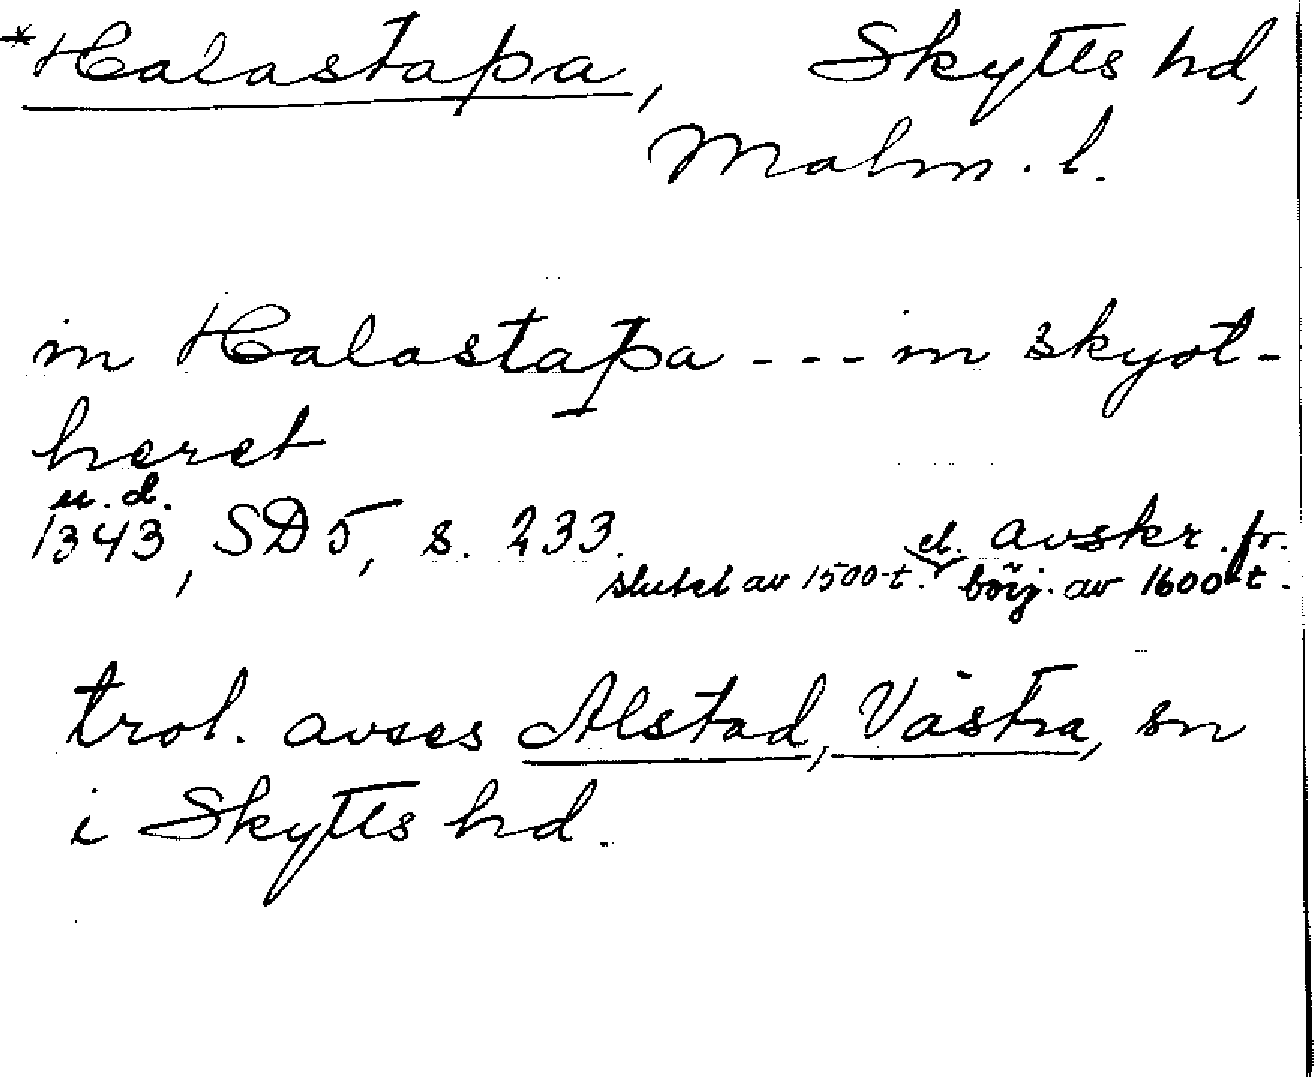 *Halastapa, Skytts hd,
Malm. l.
in Halastapa --- in skyøt-
heret
u. d.
1343, SD 5, s. 233. avskr. fr.
slutet av 1500-t. el. börj. av 1600-t.
trol. avses Alstad, Västra, sn
i Skytts hd.